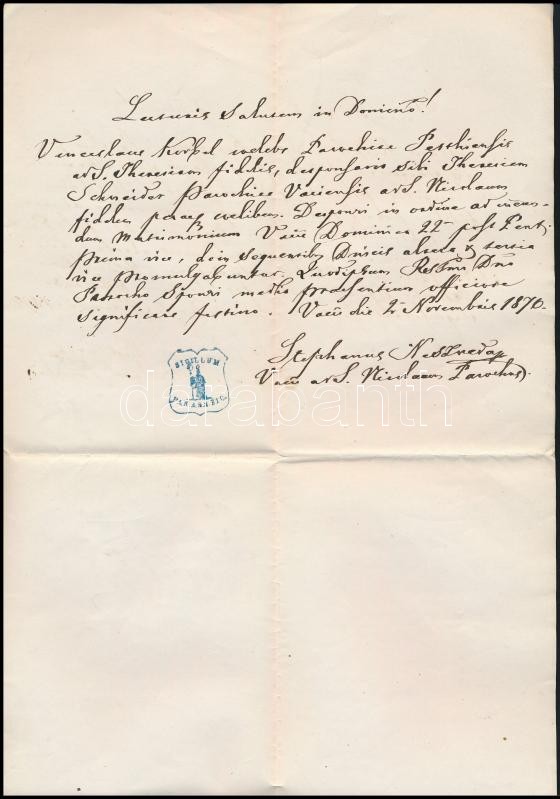 Lecturis Salutem in Domino!
Venceslaus Korbel coelebs Parochiae Pesthiensis
ad S. Theresiam fidelis, desponsavit sibi Theresiam
Schneider Parochiae Vaciensis ad S. Nicolaum
fidelem coelibem. Desponsi in ordine ad ineun-
dum Matrimonium Vacii Dominica 22a post Pent.
prima vice, dein sequentibus altera & tertia
vice promulgabuntur. Quod ipsum Rssmo Dno
Parocho Sponsi medio praesentium officiose
significare festino. Vacii die 2 Novembris 1870.
Stephanus Neszveda
Vacii ad S. Nicolaum Parochus.
SIGILLUM
darabanth